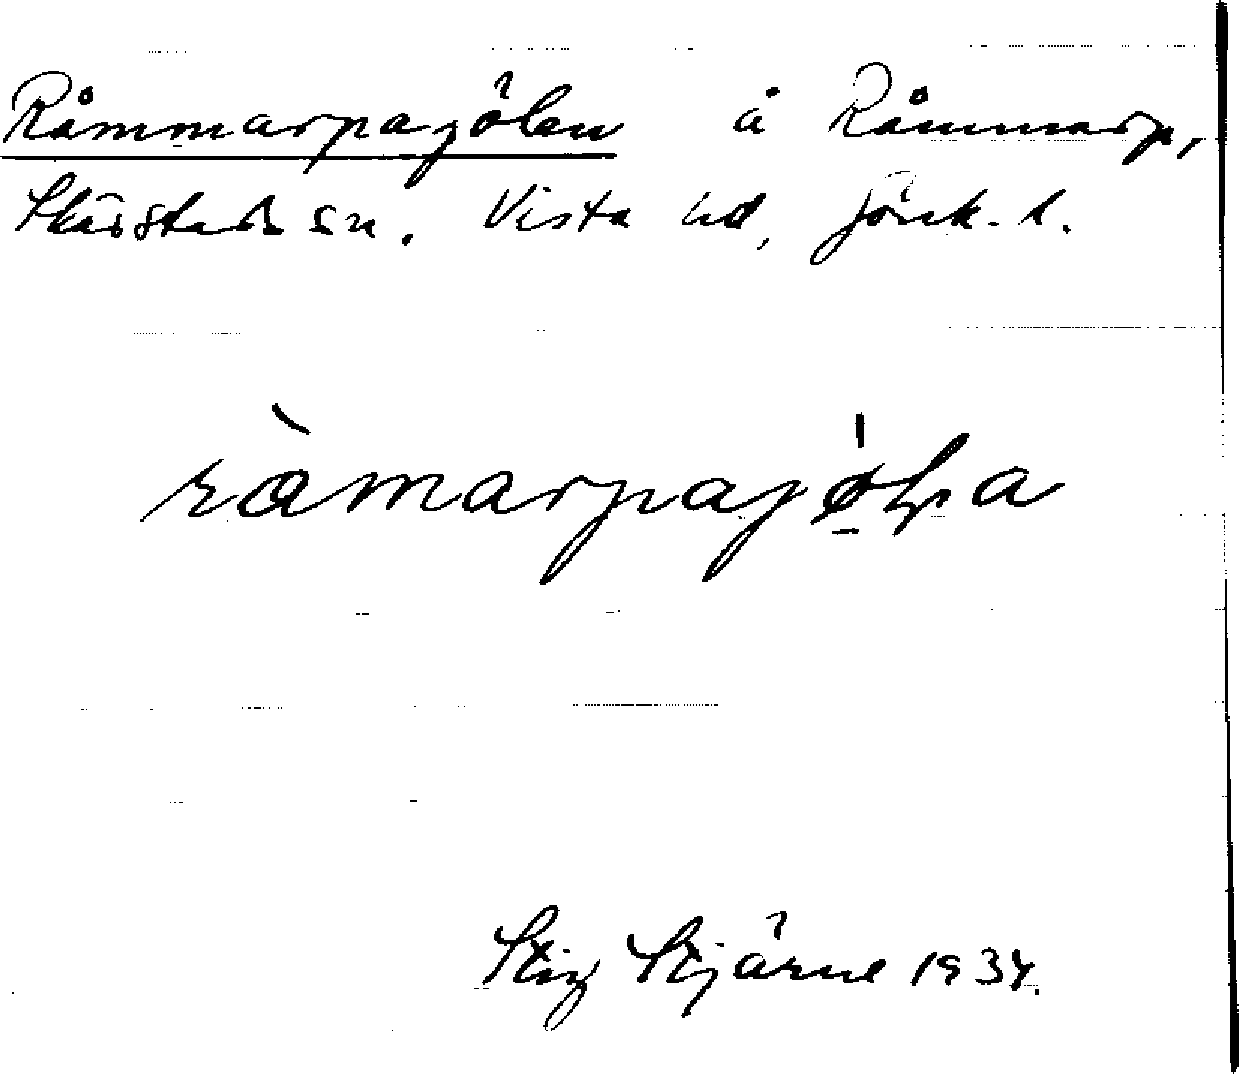 Råmmarpagölen å Råmmarp,
Skärstads sn. Vista hd, Jönk. l.
ràmarpajø̱lʼna
Stig Stjärne 1934.